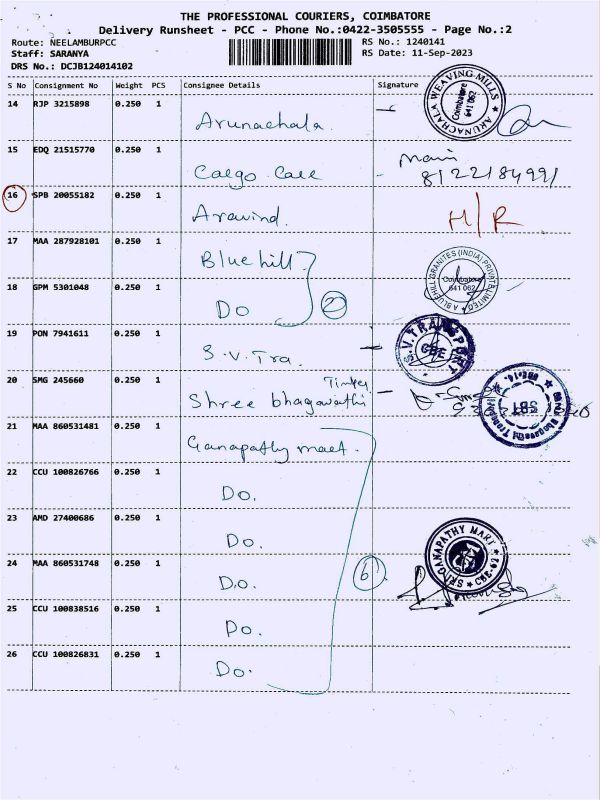 THE PROFESSIONAL COURIERS, COIMBATORE
Delivery Runsheet - PCC - Phone No.:0422-3505555 - Page No.:2
Route: NEELAMBURPCC
RS No.: 1240141
Staff: SARANYA
RS Date: 11-Sep-2023
DRS No.: DCJB124014102
S No Consignment No Weight PCS Consignee Details Signature
14 RJP 3215898 0.250 1
Arunachala.
ARUNACHALA WEAVING MILLS
Coimbatore
641 062
15 EDQ 21515770 0.250 1
Cargo Care
8122184991
16 SPB 20055182 0.250 1
Aravind.
H/R
17 MAA 287928101 0.250 1
Bluehill.
A BLUEHILL GRANITES (INDIA) PRIVATE LIMITED
Coimbatore
641 062
18 GPM 5301048 0.250 1
Do
2
19 PON 7941611 0.250 1
S.V.Tra.
S.V. TRANSPORT
CBE
20 SMG 245660 0.250 1
Shree bhagavathi
SBT
21 MAA 860531481 0.250 1
Ganapathy mart.
22 CCU 100826766 0.250 1
Do.
23 AMD 27400686 0.250 1
Do.
SRI GANAPATHY MART
CBE-62
24 MAA 860531748 0.250 1
Do.
6
25 CCU 100838516 0.250 1
Do.
26 CCU 100826831 0.250 1
Do.